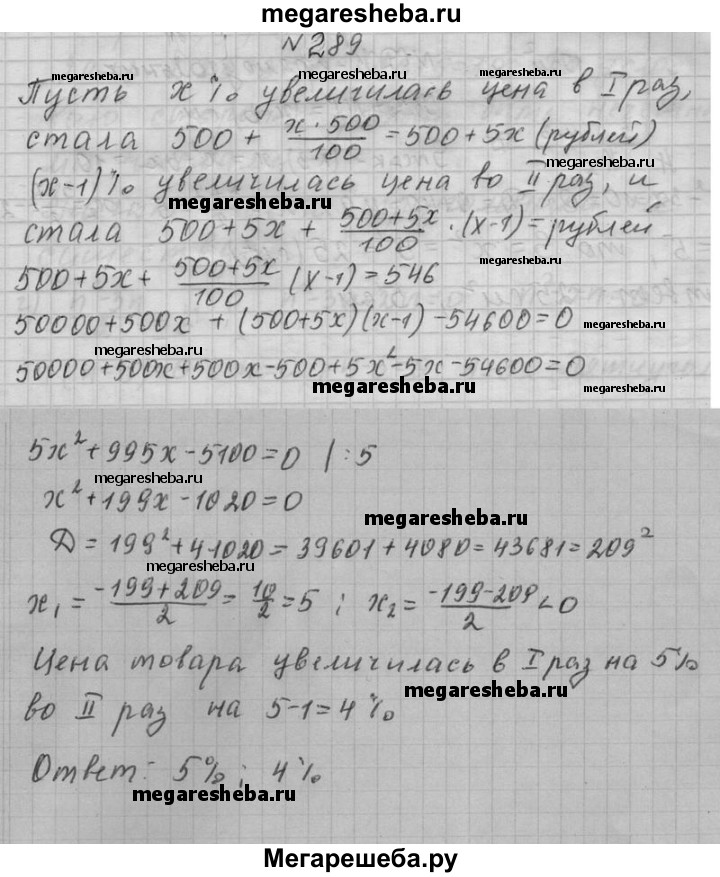 megaresheba.ru
N 289
megaresheba.ru megaresheba.ru megaresheba.ru
Пусть x % увеличилась цена в I раз,
megaresheba.ru megaresheba.ru
стала 500 + x·500/100 = 500 + 5x (рублей)
(x-1)% увеличилась цена во II раз, и
megaresheba.ru megaresheba.ru
стала 500 + 5x + (500+5x)/100 · (x-1) = рублей
megaresheba.ru
500 + 5x + (500+5x)/100 (x-1) = 546
megaresheba.ru
50000 + 500x + (500+5x)(x-1) - 54600 = 0
megaresheba.ru
megaresheba.ru
50000 + 500x + 500x - 500 + 5x² - 5x - 54600 = 0
megaresheba.ru megaresheba.ru
5x² + 995x - 5100 = 0 | : 5
megaresheba.ru
x² + 199x - 1020 = 0
megaresheba.ru
Д = 199² + 4·1020 = 39601 + 4080 = 43681 = 209²
megaresheba.ru
x₁ = (-199+209)/2 = 10/2 = 5 ; x₂ = (-199-209)/2 < 0
megaresheba.ru
Цена товара увеличилась в I раз на 5%
megaresheba.ru
во II раз на 5-1 = 4 %
Ответ: 5% ; 4%
megaresheba.ru
Мегарешеба.ру